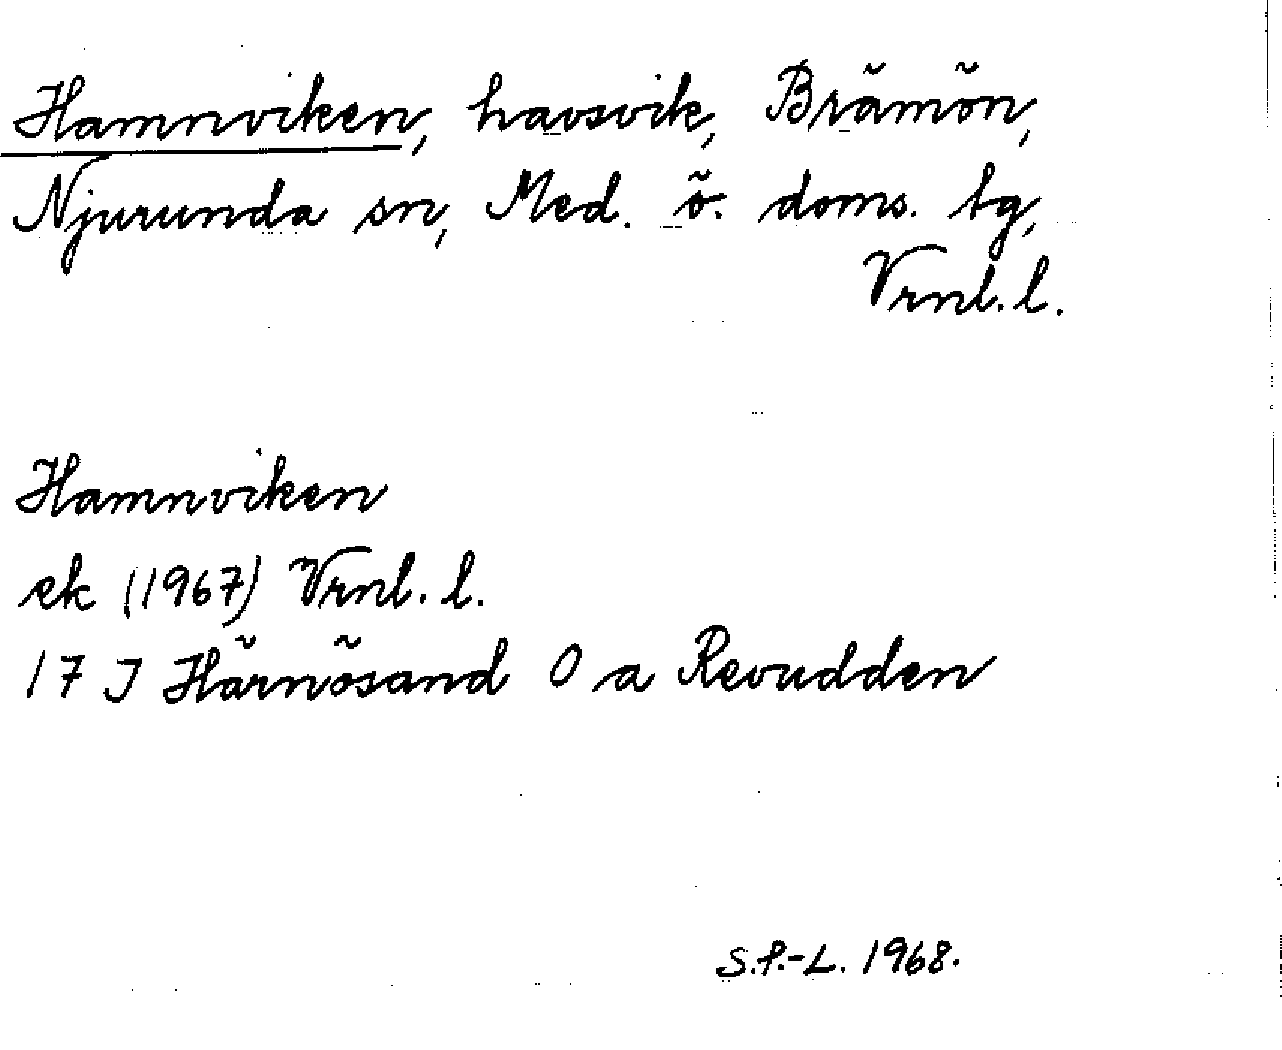 Hamnviken, havsvik, Brämön,
Njurunda sn, Med. ö. doms. tg,
Vrnl. l.
Hamnviken
ek (1967) Vrnl. l.
17 J Härnösand 0 a Revudden
S.P.-L. 1968.